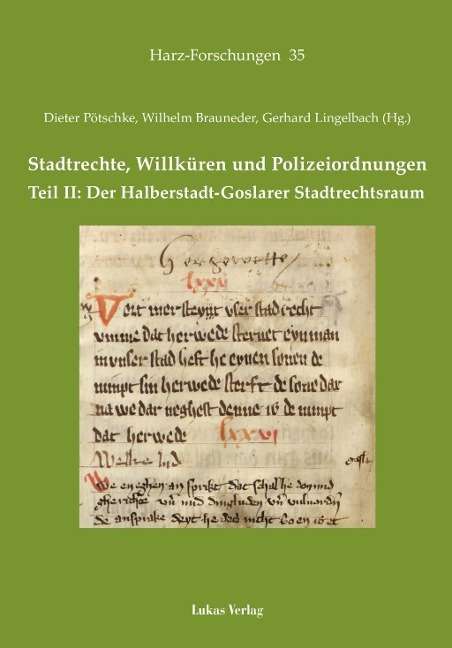 Harz-Forschungen 35
Dieter Pötschke, Wilhelm Brauneder, Gerhard Lingelbach (Hg.)
Stadtrechte, Willküren und Polizeiordnungen
Teil II: Der Halberstadt-Goslarer Stadtrechtsraum
lxxv
Vort mer steyyt vser stad recht
vmme dat herwede steruet eyn man
in vnser stad heft he eynen sonen de
nympt sin herwede sterft de sone dar
na we dar neghest denne is de nimpt
dat herwede lxxvi
We eneghen an sprikt dat schal he don
Lukas Verlag